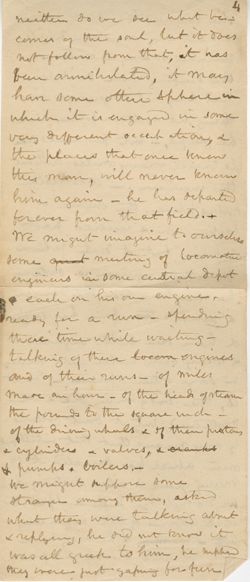 4
neither do we see what be-
comes of the soul, but it does
not follow from that, it has
been annihilated, it may
have some other sphere in
which it is engaged in some
very different occupation, &
the places that once knew
this man, will never know
him again - he has departed
forever from that field. +
We might imagine to ourselves
some meeting of locomotive
engineers in some central depot
& each on his own engine.
ready for a run - spending
there time while waiting -
talking of there locom engines
and of their runs - of miles
made an hour - of the heads of steam
the pounds to the square inch -
of the driving wheels & of their pistons
& cylinders & valves, &
& pumps & boilers. -
We might suppose some
stranger among them, asked
what they were talking about
& replying, he did not know it
was all greek to him, he
they were just gaping for